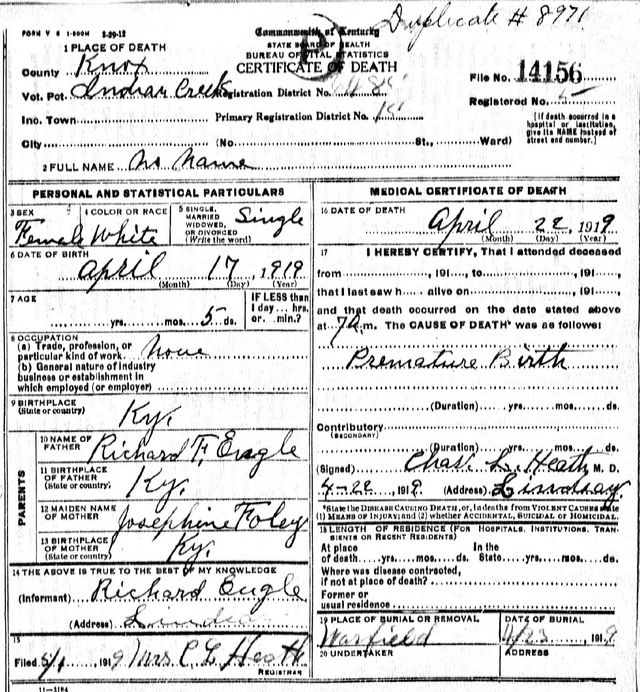 Duplicate # 8971
FORM V S 1-500M 2-29-12
Commonwealth of Kentucky
STATE BOARD OF HEALTH
BUREAU OF VITAL STATISTICS
CERTIFICATE OF DEATH
1 PLACE OF DEATH
County Knox
Vot. Pct. Indian Creek Registration District No.
File No. 14156
Registered No.
Inc. Town Primary Registration District No.
[If death occurred in a hospital or institution, give its NAME instead of street and number.]
City (No. St., Ward)
2 FULL NAME No Name
PERSONAL AND STATISTICAL PARTICULARS
3 SEX Female
4 COLOR OR RACE White
5 SINGLE, MARRIED WIDOWED, OR DIVORCED (Write the word) Single
6 DATE OF BIRTH April 17, 1919
(Month) (Day) (Year)
7 AGE yrs. mos. 5 ds.
IF LESS than 1 day... hrs. or... min.?
8 OCCUPATION
(a) Trade, profession, or particular kind of work None
(b) General nature of industry business or establishment in which employed (or employer)
9 BIRTHPLACE (State or country) Ky.
PARENTS
10 NAME OF FATHER Richard F. Engle
11 BIRTHPLACE OF FATHER (State or country) Ky.
12 MAIDEN NAME OF MOTHER Josephine Foley
13 BIRTHPLACE OF MOTHER (State or country) Ky.
14 THE ABOVE IS TRUE TO THE BEST OF MY KNOWLEDGE
(Informant) Richard Engle
(Address)
15
Filed 5/1 1919 Mrs C L Heath
REGISTRAR
11-3184
MEDICAL CERTIFICATE OF DEATH
16 DATE OF DEATH April 22, 1919
(Month) (Day) (Year)
17 I HEREBY CERTIFY, That I attended deceased
from , 191 , to , 191 ,
that I last saw h alive on , 191 ,
and that death occurred on the date stated above
at 7 a.m. The CAUSE OF DEATH* was as follows:
Premature Birth
(Duration) yrs. mos. ds.
Contributory
(SECONDARY)
(Duration) yrs. mos. ds.
(Signed) Chas. L. Heath M. D.
4-22, 1919. (Address) Lindsay.
*State the DISEASE CAUSING DEATH, or, in deaths from VIOLENT CAUSES state
(1) MEANS OF INJURY; and (2) whether ACCIDENTAL, SUICIDAL or HOMICIDAL.
18 LENGTH OF RESIDENCE (FOR HOSPITALS, INSTITUTIONS, TRANSIENTS OR RECENT RESIDENTS)
At place of death yrs. mos. ds. In the State yrs. mos. ds.
Where was disease contracted,
if not at place of death?
Former or
usual residence
19 PLACE OF BURIAL OR REMOVAL Warfield
DATE OF BURIAL 4/23, 1919
20 UNDERTAKER
ADDRESS